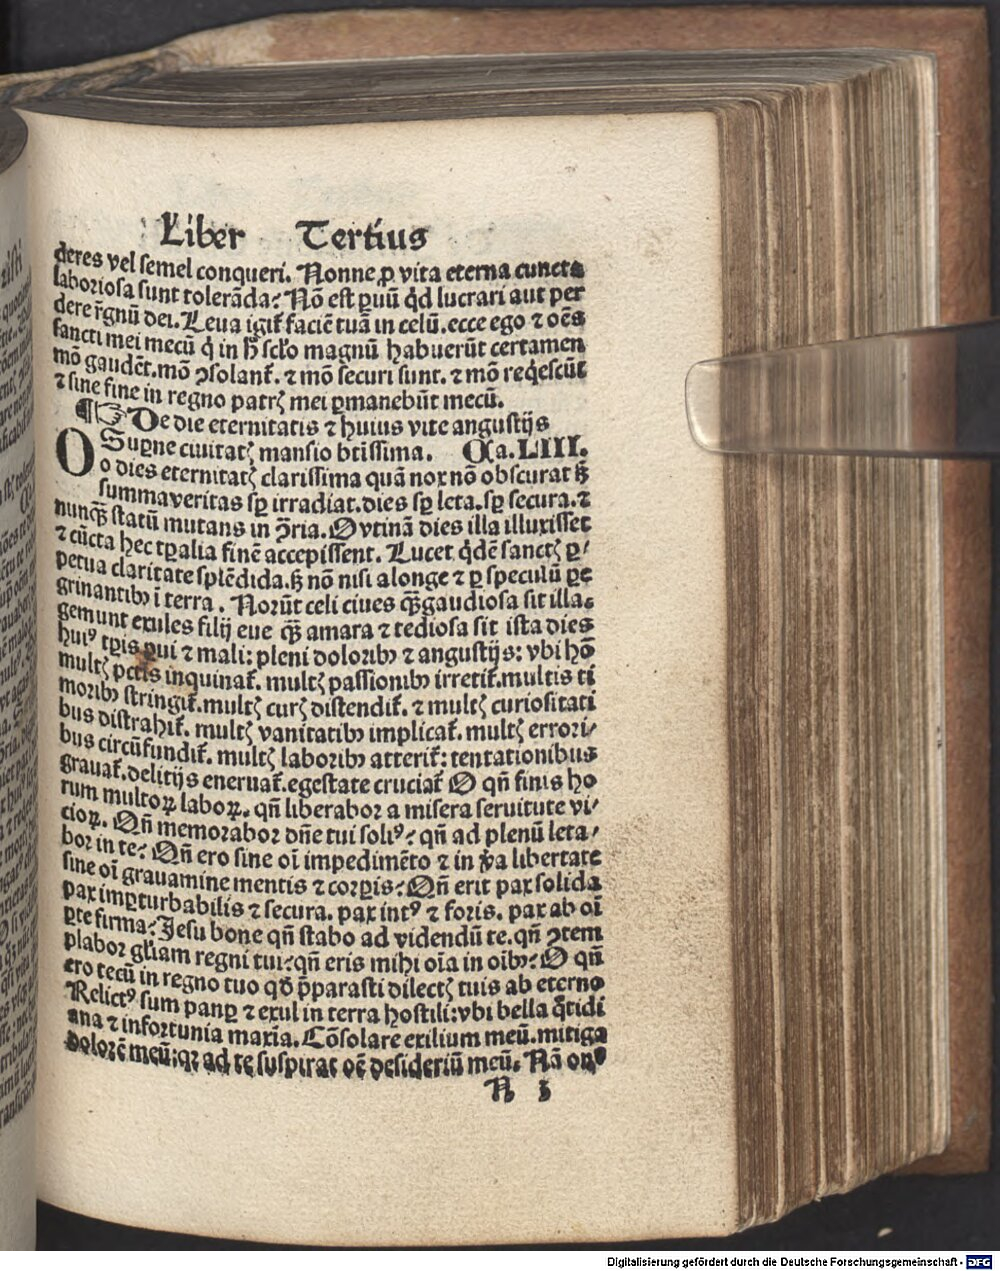 Liber Tertius
deres vel semel conqueri. Nonne ꝓ vita eterna cuncta
laboriosa sunt tolerāda? Nō est ꝑuū qd̛ lucrari aut per
dere r̄gnū dei. Leua igit᷑ faciē tuā in celū. ecce ego ⁊ oēs
sancti mei mecū q̇ in h̄ sclo̅ magnū habuerūt certamen
mō gaudēt. mō ꝯsolant᷑. ⁊ mō securi sunt. ⁊ mō reqescūt
⁊ sine fine in regno patrꝫ mei ꝑmanebūt mecū.
¶☞ De die eternitatis ⁊ huius vite angustijs
O Suꝑne ciuitatꝫ mansio btissima. Ca. LIII.
o dies eternitatꝫ clarissima quā nox nō obscurat sꝫ
summa veritas sꝑ irradiat. dies sꝑ leta. sꝑ secura. ⁊
nunqꝫ statū mutans in ꝯ̄ria. O vtinā dies illa illuxisset
⁊ cūcta hec tꝑalia finē accepissent. Lucet qdē sanctꝫ ꝑ/
petua claritate splēdida. sꝫ nō nisi a longe ⁊ ꝑ speculū ꝑe
grinantibꝫ ī terra. Norūt celi ciues qꝫ gaudiosa sit illa.
gemunt exules filij eue qꝫ amara ⁊ tediosa sit ista dies
huiꝰ tꝑis ꝑui ⁊ mali: pleni doloribꝫ ⁊ angustijs: vbi hō
multꝫ pctis inquinat᷑. multꝫ passionibꝫ irretit᷑. multis ti
moribꝫ stringit᷑. multꝫ curꝫ distendit᷑. ⁊ multꝫ curiositati
bus distrahit᷑. multꝫ vanitatibꝫ implicat᷑. multꝫ errori/
bus circūfundit᷑. multꝫ laboribꝫ atterit᷑: tentationibus
grauat᷑. delitijs eneruat᷑. egestate cruciat᷑ O qn̄ finis ho
rum multoꝝ laboꝝ. qn̄ liberabor a misera seruitute vi/
cioꝝ. Qn̄ memorabor dn̄e tui soliꝰ? qn̄ ad plenū leta/
bor in te? Qn̄ ero sine oī impedimēto ⁊ in ꝟa libertate
sine oī grauamine mentis ⁊ corꝑis? Qn̄ erit pax solida
pax imꝑturbabilis ⁊ secura. pax intꝰ ⁊ foris. pax ab oī
ꝑte firma? Jesu bone qn̄ stabo ad videndū te. qn̄ ꝯtem
plabor gl̄iam regni tui? qn̄ eris mihi oīa in oībꝫ? O qn̄
ero tecū in regno tuo qd̛ p̄parasti dilectꝫ tuis ab eterno
Relictꝰ sum pauꝑ ⁊ exul in terra hostili: vbi bella q̄tidi
ana ⁊ infortunia maxīa. Cōsolare exilium meū. mitiga
dolorē meū: qꝛ ad te suspirat oē desideriū meū. Nā onꝰ
N 3
Digitalisierung gefördert durch die Deutsche Forschungsgemeinschaft - DFG